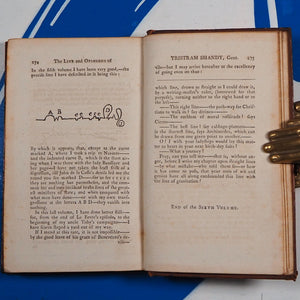 274 The Life and Opinions of
In the fifth volume I have been very good,—the
precise line I have described in it being this:
A B
By which it appears, that except at the curve
marked A, where I took a trip to Navarre—
and the indented curve B, which is the short air-
ing when I was there with the lady Baussiere and
her page,—I have not taken the least frisk of a
digression, till John de la Casse's devils led me the
round you see marked D—for as for c c c c c
they are nothing but parentheses, and the common
ins and outs incident to the lives of the greatest
ministers of state; and when compared with what
men have done,—or with my own transgressions
at the letters A B D—they vanish into
nothing.
In this last volume I have done better still—
for from the end of Le Fever's episode, to the
beginning of my uncle Toby's campaigns,—I
have scarce stepped a yard out of my way.
If I mend at this rate, it is not impossible—
by the good leave of his grace of Benevento's de-
vils—
TRISTRAM SHANDY, Gent. 275
vils—but I may arrive hereafter at the excellency
of going even on thus:
which line, drawn as straight as I could draw it,
by a writing-master's ruler, (borrowed for that
purpose), turning neither to the right hand or to
the left.
—This right line—the path-way for Christians
to walk in! say divines—
—The emblem of moral rectitude! says Cicero—
—The best line! say cabbage-planters—
is the shortest line, says Archimedes, which can
be drawn from one given point to another.—
—Pray, can you tell me—that is, without anger,
before I write my chapter upon straight lines—by
what mistake—who told them so—or how it has
come to pass, that your men of wit and genius
have all along confounded this line with the line
of gravitation?
End of the Sixth Volume.